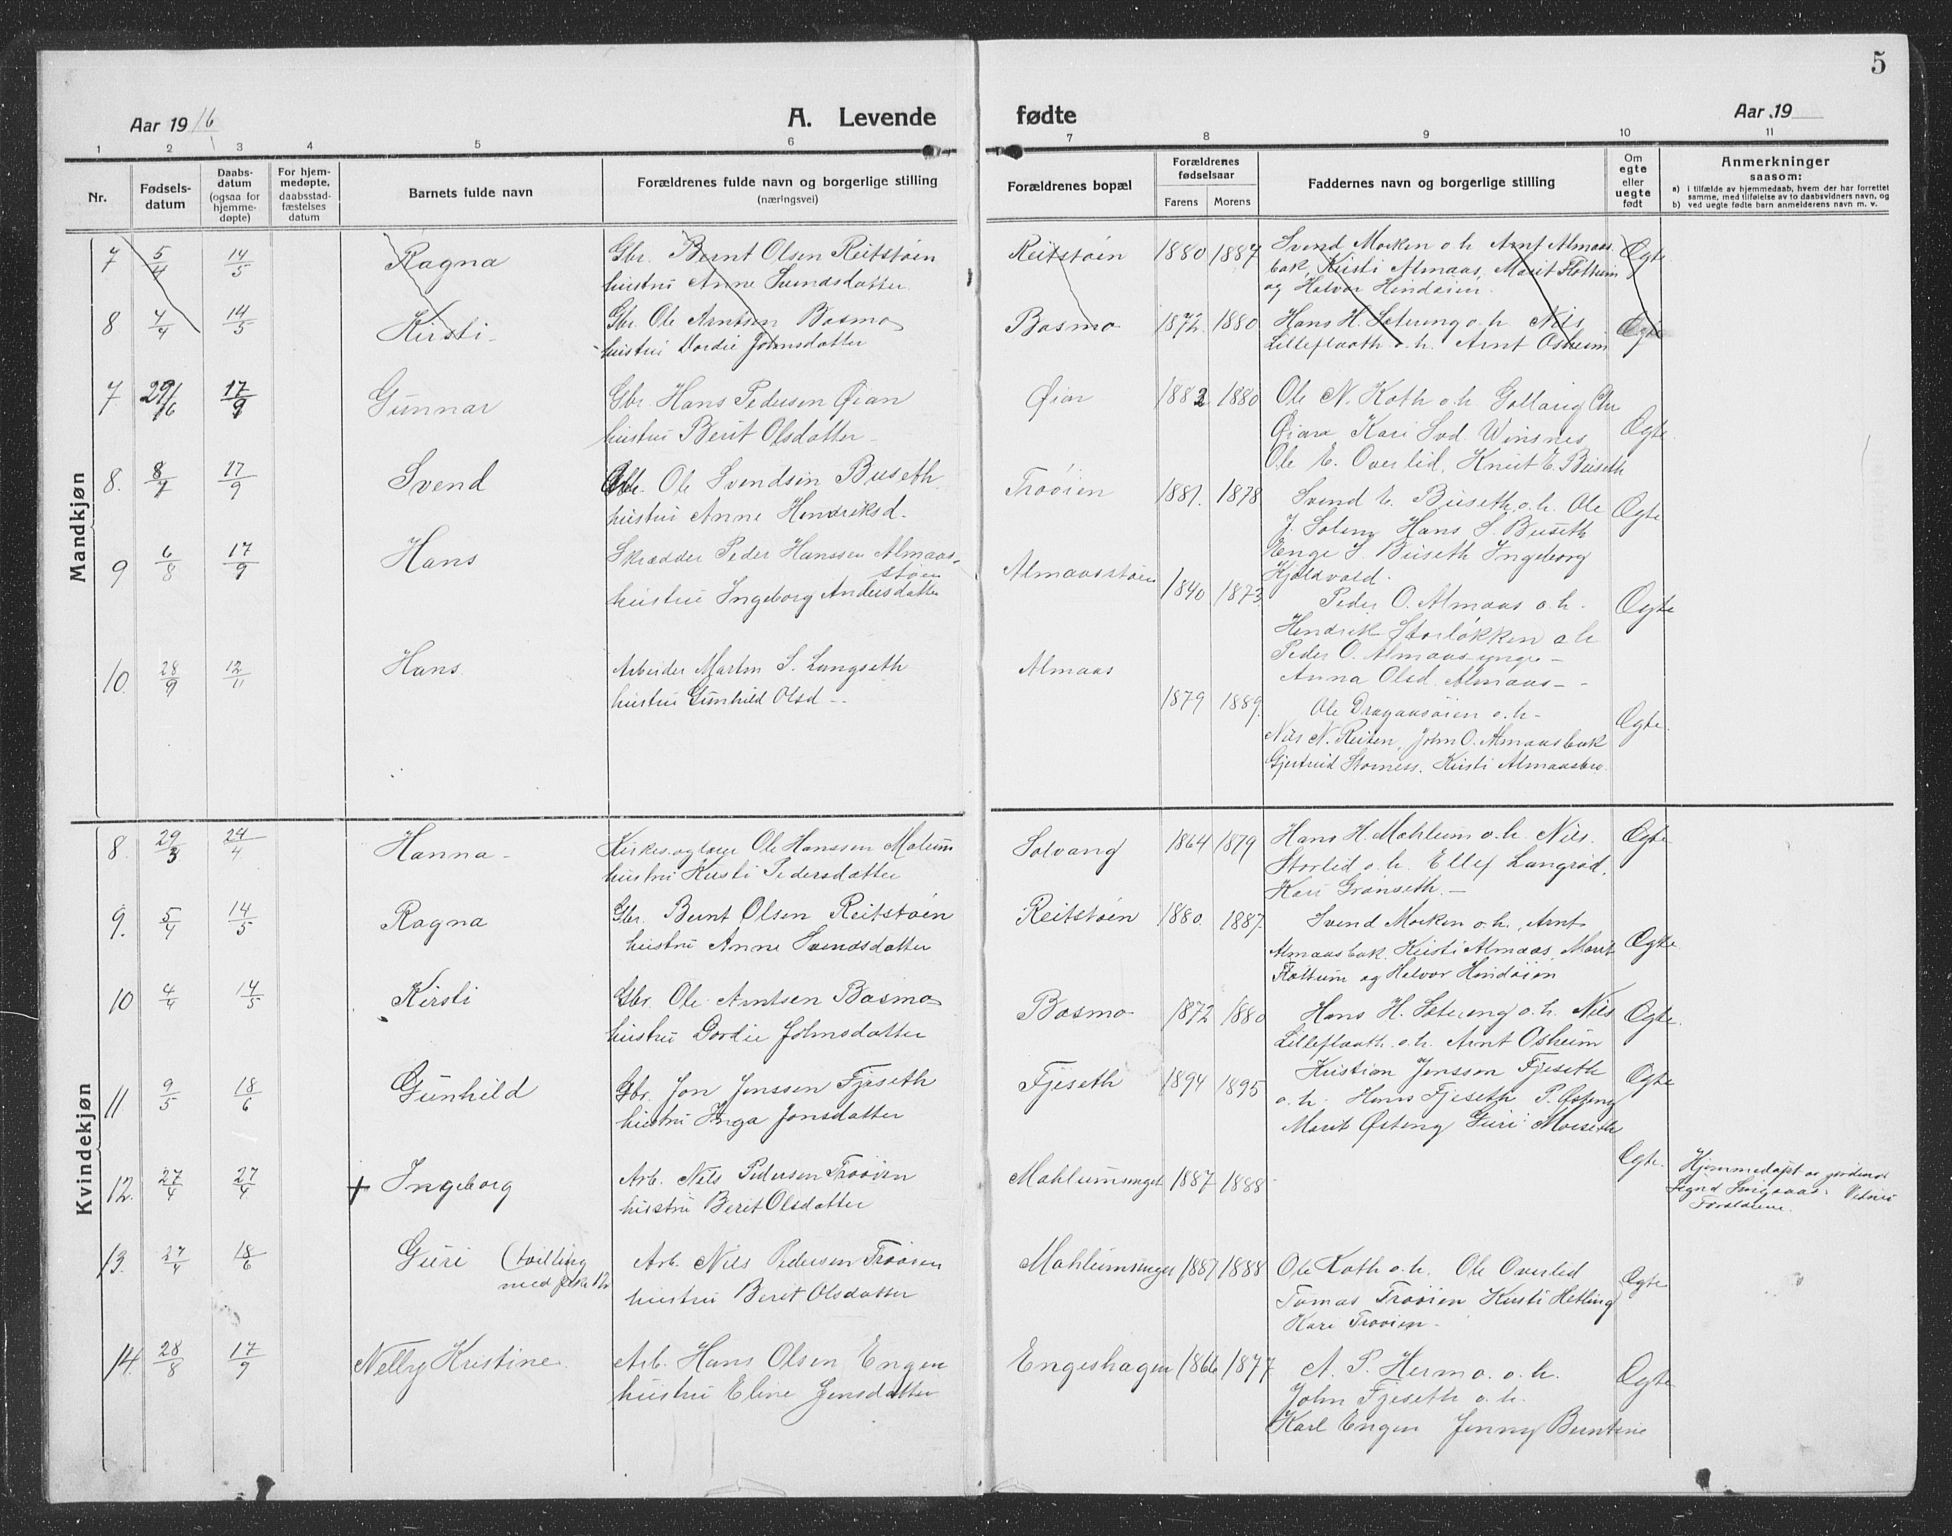 5
Aar 1916 A. Levende fødte Aar 19
1 2 3 4 5 6 7 8 9 10 11
Nr. Fødsels-datum Daabs-datum (ogsaa for hjemme-døpte) For hjem-medøpte, daabsstad-fæstelses datum Barnets fulde navn Forældrenes fulde navn og borgerlige stilling (næringsvei) Forældrenes bopæl Forældrenes fødselsaar Farens Morens Faddernes navn og borgerlige stilling Om egte eller uegte født Anmerkninger saasom:
a) i tilfælde av hjemmedaab, hvem der har forrettet samme, med tilføielse av to daabsvidners navn, og
b) ved uegte fødte barn anmelderens navn m. v.
Mandkjøn
7 5/4 14/5 Ragna Gbr. Bernt Olsen Reitstøen Reitstøen 1880 1887 Svend Moken o.h. Arnt Almaas Ægte
hustru Anne Svendsdatter bak, Kirsti Almaas, Marit Flottum
og Halvor Hindøien
8 4/4 14/5 Kirsti Gbr. Ole Arntsen Bosmo Bosmo 1872 1880 Hans H. Setereng o.h. Nils Ægte
hustru Dordie Johnsdatter Lillefloath o.h. Arnt Osheim
7 29/6 17/9 Gunnar Gbr. Hans Pedersen Øian Øian 1882 1880 Ole N. Koth o.h.
hustru Berit Olsdatter Øian Kari Svd. Winsnes Ægte
Ole E. Overlid, Knut E. Buseth
8. 8/7 17/9 Svend Gbr. Ole Svendsen Buseth Trøøien 1881. 1878 Svend E. Buseth o.h. Ole Ægte
hustru Anne Hendriksd. J. Soleng Hans S. Buseth
Enge S. Buseth Ingeborg
Kjeldvold.
9 6/8 17/9 Hans Skrædder Peder Hanssen Almaas-støen Almaasstøen 1840 1873 Peder O. Almaas o.h. Ægte
hustru Ingeborg Andersdatter Hendrik Storløkken o.h.
Peder O. Almaas yngre -
Anna Olsd. Almaas -
10 28/9 12/11 Hans. Arbeider Martin S. Langseth Almaas 1879 1889. Ole Dragaasøien o.h. Ægte.
hustru Gunhild Olsd Nils N. Reiten, John O. Almaasbak
Gjertrud Storness. Kirsti Almaasbro.
Kvindekjøn
8. 29/3 24/4 Hanna Ole Hanssen Malum Solvang 1864 1879 Hans H. Mahlum o.h. Nils Ægte
hustru Kirsti Pedersdatter Storlid o.h. Ellef Langrød.
Kari Grønseth.
9. 5/4 14/5 Ragna Gbr. Bernt Olsen Reitstøen Reitstøen 1880. 1887. Svend Moken o.h., Arnt Ægte
hustru Anne Svendsdatter Almaasbak, Kirsti Almaas, Marit
Flottum og Halvor Hindøien
10 4/4 14/5 Kirsti Gbr. Ole Arntsen Bosmo Bosmo 1872 1880 Hans H. Setereng o.h. Nils Ægte.
hustru Dordie Johnsdatter Lillefloath o.h. Arnt Osheim
11 9/5 18/6 Gunhild Gbr. Jon Jonssen Fjeseth Fjeseth 1894 1895 Kristian Jonsson Fjeseth Ægte
hustru Inga Jonsdatter o.h. Hans Fjeseth P. Østeng
Marit Østeng Guri Moseth
12. 27/4 27/4 + Ingeborg Arb. Nils Pedersen Trøøien Mahlumsenget 1887 1888 Ægte. Hjemmedøpt av jordemor
hustru Berit Olsdatter Signe Singsaas. Vidner
Forældrene.
13. 27/4 18/6 Guri (tvilling med pike 12 Arb. Nils Pedersen Trøøien Mahlumsenget 1887 1888 Ole Koth o.h. Ole Overlid Ægte
hustru Berit Olsdatter Tomas Trøøien Kirsti Hetling
Kari Trøøien
14. 28/8 17/9 Nelly Kristine. Arb. Hans Olsen Engen Engeshagen 1866 1877 A. P. Hermo. o.h. Ægte
hustru Eline Jensdatter John Fjeseth o.h.
Karl Engen Jenny Buntine